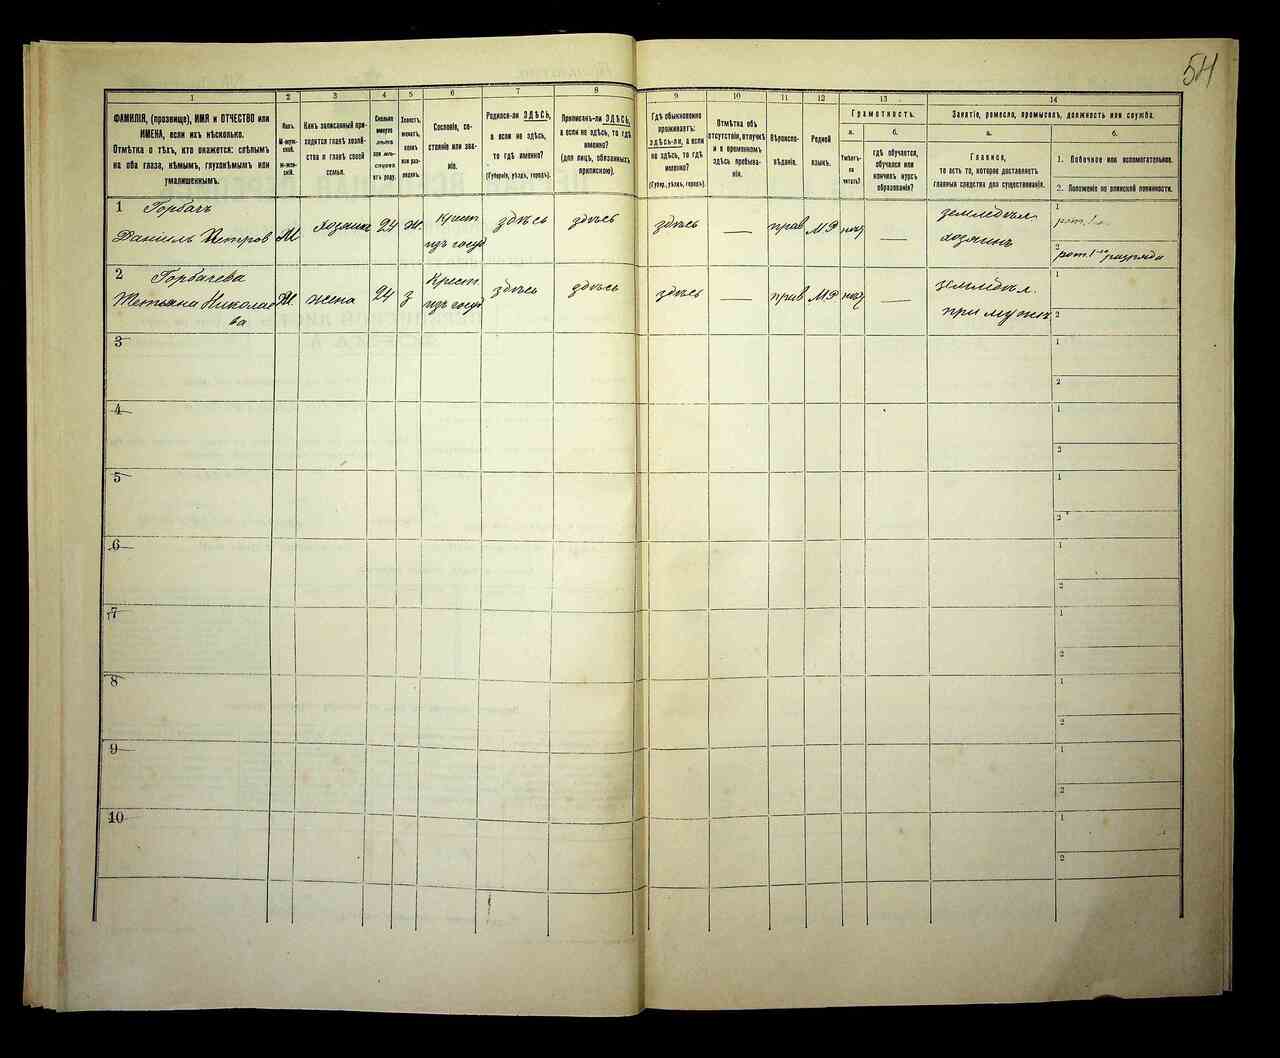 54
1
2
3
4
5
6
7
8
9
10
11
12
13
14
ФАМИЛІЯ, (прозвище), ИМЯ и ОТЧЕСТВО или
ИМЕНА, если ихъ нѣсколько.
Отмѣтка о тѣхъ, кто окажется: слѣпымъ
на оба глаза, нѣмымъ, глухонѣмымъ или
умалишеннымъ.
Полъ.
М-муж-
ской.
Ж-жен-
скій.
Какъ записанный при-
ходится главѣ хозяй-
ства и главѣ своей
семьи.
Сколько
минуло
лѣтъ
или мѣ-
сяцевъ
отъ роду.
Холостъ,
женатъ,
вдовъ
или раз-
веденъ.
Сословіе, со-
стояніе или зва-
ніе.
Родился-ли ЗДѢСЬ,
а если не здѣсь,
то гдѣ именно?
(Губернія, уѣздъ, городъ).
Приписанъ-ли ЗДѢСЬ,
а если не здѣсь, то гдѣ
именно?
(для лицъ, обязанныхъ
припискою).
Гдѣ обыкновенно
проживаетъ:
ЗДѢСЬ-ли, а если
не здѣсь, то гдѣ
именно?
(Губер., уѣздъ, городъ).
Отмѣтка объ
отсутствіи, отлучкѣ
и о временномъ
здѣсь пребыва-
ніи.
Вѣроиспо-
вѣданіе.
Родной
языкъ.
Грамотность.
а.
б.
Умѣетъ-
ли
читать?
гдѣ обучается,
обучался или
кончилъ курсъ
образованія?
Занятіе, ремесло, промыселъ, должность или служба.
а.
б.
Главное,
то есть то, которое доставляетъ
главныя средства для существованія.
1. Побочное или вспомогательное.
2. Положеніе по воинской повинности.
1 Горбачъ
Даніилъ Петров
М
хозяин
24
ж.
Крест.
изъ госуд
здѣсь
здѣсь
здѣсь
—
прав
МР
—
земледѣл.
хозяинъ
1
2
рат. 1-го разряда
2 Горбачева
Тетьяна Николае
ва
жена
24
з
Крест.
изъ госуд
здѣсь
здѣсь
здѣсь
—
прав
МР
—
земледѣл.
при мужѣ
1
2
3
1
2
4
1
2
5
1
2
6
1
2
7
1
2
8
1
2
9
1
2
10
1
2